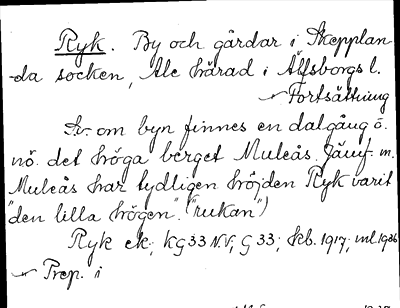 Ryk. By och gårdar i Skepplan-
da socken, Ale härad i Älfsborgs l.
Fortsättning
Sv. om byn finnes en dalgång ö.
nö. det höga berget Muleås. Jämf. m.
Muleås har tydligen höjden Ryk varit
"den lilla högen". ("rukan")
Ryk ek; KG 33 NV, G 33; skb. 1917; ml. 1936
Prep. i